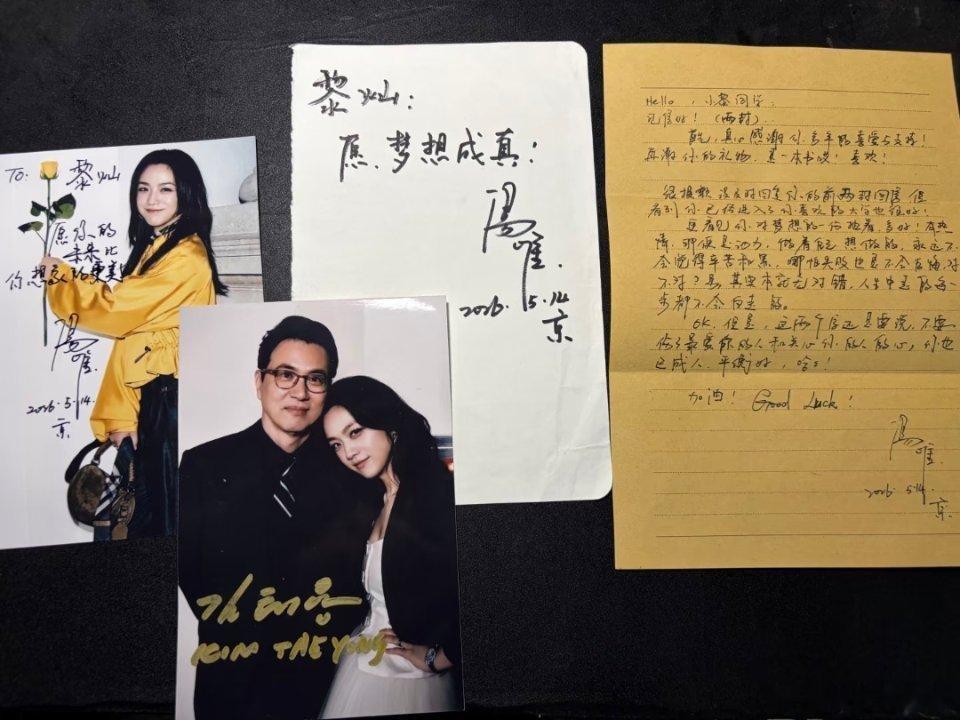 TO: 黎灿
愿你的
未来比
你想象的更美!
汤唯
2026.5.14.
京
黎灿:
愿梦想成真!
汤唯
2026. 5.14
京
김태용
KIM TAE YONG
Hello, 小黎同学:
见信好! (两封)..
首先,真心感谢你多年的喜爱与支持!
再谢你的礼物,是一本书哎!喜欢!
很抱歉没及时回复你的前两封回信 但
看到你已经进入了你喜欢的大学也很好!
还看见你对梦想的 真好!有热
情,那便是动力,做着自己想做的,永远不
会觉得辛苦和累,哪怕失败也是不会后悔,对
不对?另,其实本就无对错,人生中走的每一
步都不会白走的。
OK,但是,这两个字还是要说,不要
伤了最爱你的人和关心你的人的心,你也
已成人,平衡好,哈!
加油! Good Luck!
汤唯
2026. 5.14.
京